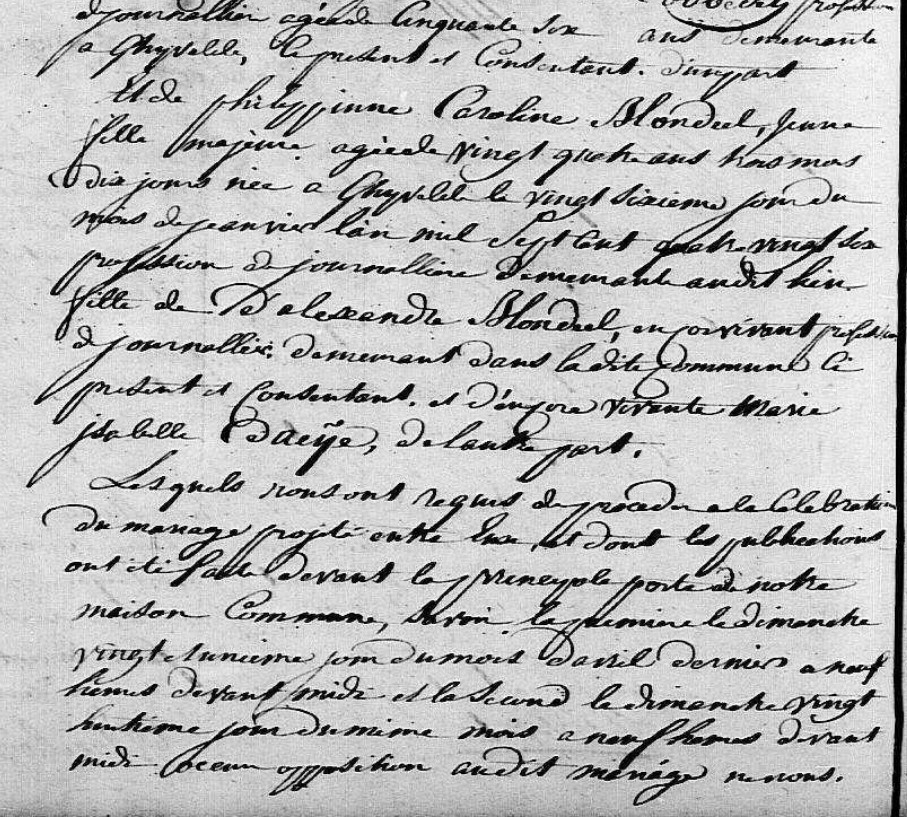 profession
djournallier agée de Cinquante six ans demeurante
a Ghyvelde, Ce présent et Consentant. d'une part
Et de philippinne Caroline Blondeel, Jeune
fille majeure agée de vingt quatre ans trois mois
dix jours née a Ghyvelde le vingt sixieme jour du
mois de jeanvier l'an mil Sept Cent quatre vingt six
profession de journalliere demeurante audit lieu
fille de D'alexandre Blondeel, encor vivant profession
djournallier demeurant dans la dite Commune Ci
present et Consentant. et d'encore vivante Marie
jsabelle Daeÿe, de l'autre part.
Lesquels nous ont requis de proceder a la Celebration
du mariage projeté entre Eux, et dont les publications
ont été faite devant la principale porte de notre
maison Commune, Savoir, la premiere le dimanche
vingt et unieme jour du mois davril dernier a neuf
heures devant midi et la Second le dimanche vingt
huitieme jour du même mois a neuf heures devant
midi aucun opposition audit mariage ne nous.